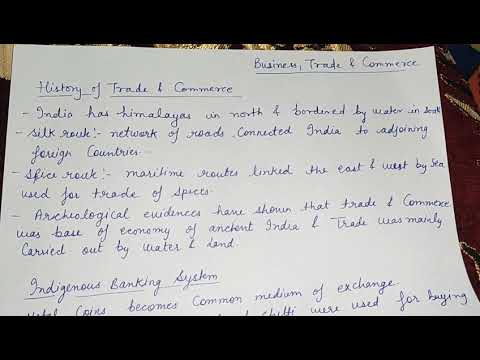 Business, Trade & Commerce
History of Trade & Commerce
- India has himalayas in north & bordered by water in South
- Silk rouk:- network of roads connected India to adjoining
foreign Countries.
- Spice rouk:- maritime routes linked the east & west by Sea
used for trade of Spices.
- Archeological evidences have shown that trade & Commerce
was base of economy of ancient India & Trade was mainly
Carried out by water & land.
Indigenous Banking System
Metal Coins becomes Common medium of exchange.
were used for buying